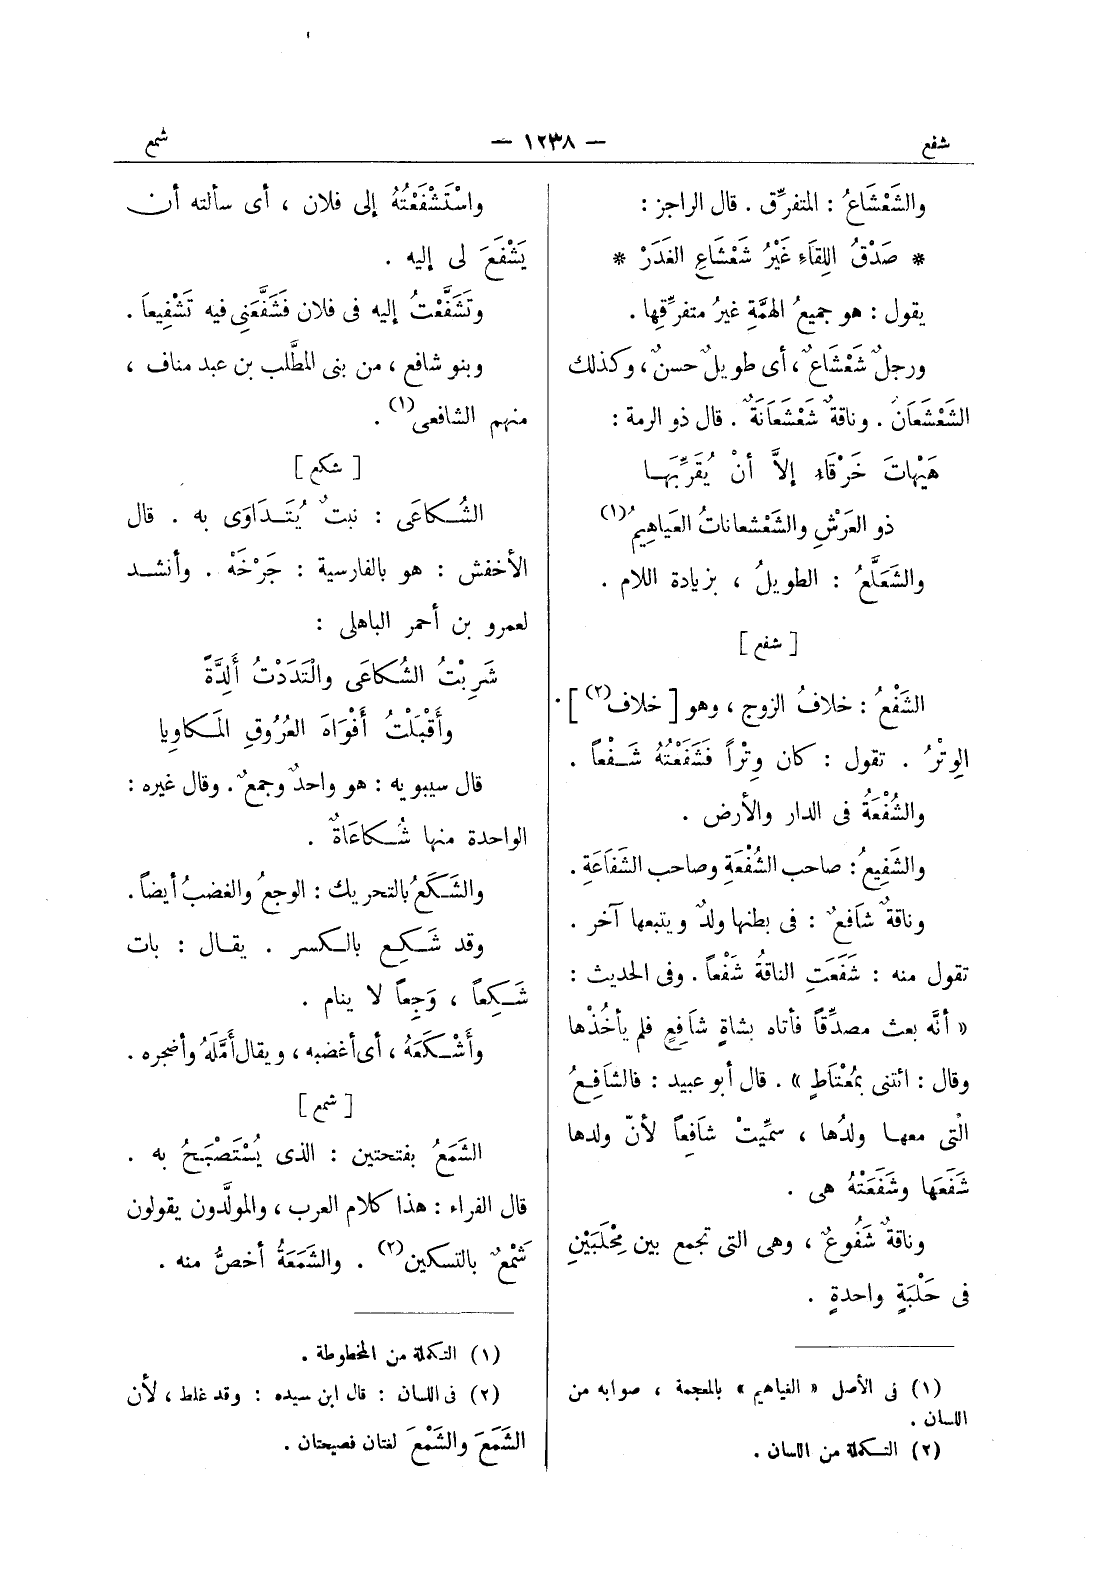 شفع — ١٢٣٨ — شمع
والشَعْشَاعُ : المتفرِّق . قال الراجز :
* صَدْقُ اللِقَاءِ غَيْرُ شَعْشَاعِ الغَدَرْ *
يقول : هو جميعُ الهمَّةِ غيرُ متفرِّقِها .
ورجلٌ شَعْشَاعٌ ، أى طويلٌ حسنٌ ، وكذلك
الشَعْشَعَانُ . وناقةٌ شَعْشَعَانَةٌ . قال ذو الرمة :
هَيْهاتَ خَرْقَاءِ إلاَّ أنْ يُقَرِّبَهــا
ذو العَرْشِ والشَعْشعاناتُ العَياهِيمُ(١)
والشَعَلَّعُ : الطويلُ ، بزيادة اللام .
[ شفع ]
الشَفْعُ : خلافُ الزوج ، وهو [ خلاف(٢) ]
الوِتْرُ . تقول : كان وِتْراً فَشَفَعْتُهُ شَـفْعاً .
والشُفْعَةُ فى الدار والأرض .
والشَفِيعُ : صاحب الشُفْعَةِ وصاحب الشَفَاعَةِ .
وناقةٌ شافعٌ : فى بطنها ولدٌ ويتبعها آخر .
تقول منه : شَفَعَتِ الناقةُ شَفْعاً . وفى الحديث :
« أنَّه بعث مصدِّقاً فأتاه بشاةٍ شافِعٍ فلم يأخُذْها
وقال : ائتنى بمُعْتَاطٍ » . قال أبو عبيد : فالشافِعُ
الَّتى معهـا ولدُها ، سمِّيتْ شافِعاً لأنّ ولدها
شَفَعَها وشَفَعَتْهُ هى .
وناقةٌ شَفُوعٌ ، وهى التى تجمع بين مِحْلَبَيْنِ
فى حَلْبَةٍ واحدةٍ .
(١) فى الأصل « الغياهيم » بالمعجمة ، صوابه من
اللسان .
(٢) التـكملة من اللسان .
واسْتَشْفَعْتُهُ إلى فلان ، أى سألته أن
يَشْفَعَ لى إليه .
وتَشَفَّعْتُ إليه فى فلان فَشَفَّعَنِى فيه تَشْفِيعاً .
وبنو شافع ، من بنى المطَّلب بن عبد مناف ،
منهم الشافعى(١) .
[ شكع ]
الشُـكَاعَى : نبتٌ يُتَـدَاوَى به . قال
الأخفش : هو بالفارسية : جَرْخَهْ . وأنشـد
لعمرو بن أحمر الباهلى :
شَرِبْتُ الشُكَاعَى والْتَدَدْتُ أَلِدَّةً
وأَقْبَلْتُ أَفْوَاهَ العُرُوقِ المَكاوِيا
قال سيبويه : هو واحدٌ وجمعٌ . وقال غيره :
الواحدة منها شُـكاعَاةٌ .
والشَكَعُ بالتحريك : الوجعُ والغضبُ أيضاً .
وقد شَـكِـع بالـكسر . يقـال : بات
شَـكِعاً ، وَجِعاً لا ينام .
وأَشْـكَعَهُ ، أى أغضبه ، ويقال أَمَّلَهُ وأضجره .
[ شمع ]
الشَمَعُ بفتحتين : الذى يُسْتَصْبَـحُ به .
قال الفراء : هذا كلام العرب ، والمولَّدون يقولون
شَمْعٌ بالتسكين(٢) . والشَمَعَةُ أخصُّ منه .
(١) التـكملة من المخطوطة .
(٢) فى اللسان : قال ابن سيده : وقد غلط ، لأن
الشَمَعَ والشَمْعَ لغتان فصيحتان .